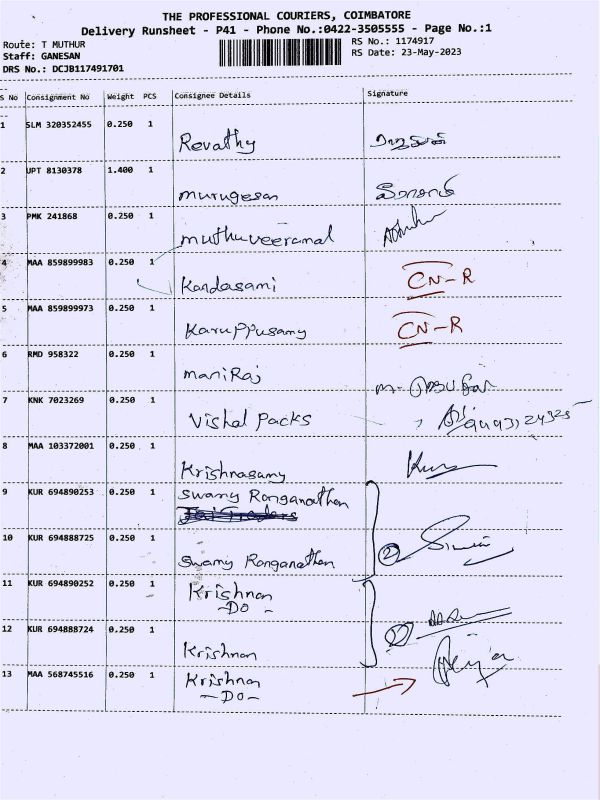 THE PROFESSIONAL COURIERS, COIMBATORE
Delivery Runsheet - P41 - Phone No.:0422-3505555 - Page No.:1
Route: T MUTHUR
RS No.: 1174917
Staff: GANESAN
RS Date: 23-May-2023
DRS No.: DCJB117491701
S No Consignment No Weight PCS Consignee Details Signature
1 SLM 320352455 0.250 1 Revathy
2 UPT 8130378 1.400 1 murugesan
3 PMK 241868 0.250 1 muthuveeramal
4 MAA 859899983 0.250 1 Kandasami CN-R
5 MAA 859899973 0.250 1 Karuppusamy CN-R
6 RMD 958322 0.250 1 maniRaj
7 KNK 7023269 0.250 1 Vishal Packs
8 MAA 103372001 0.250 1 Krishnasamy
9 KUR 694890253 0.250 1 Swamy Ranganathan
10 KUR 694888725 0.250 1 Swamy Ranganathan 2
11 KUR 694890252 0.250 1 Krishnan
-DO-
12 KUR 694888724 0.250 1 Krishnan 2
13 MAA 568745516 0.250 1 Krishnan
-DO-